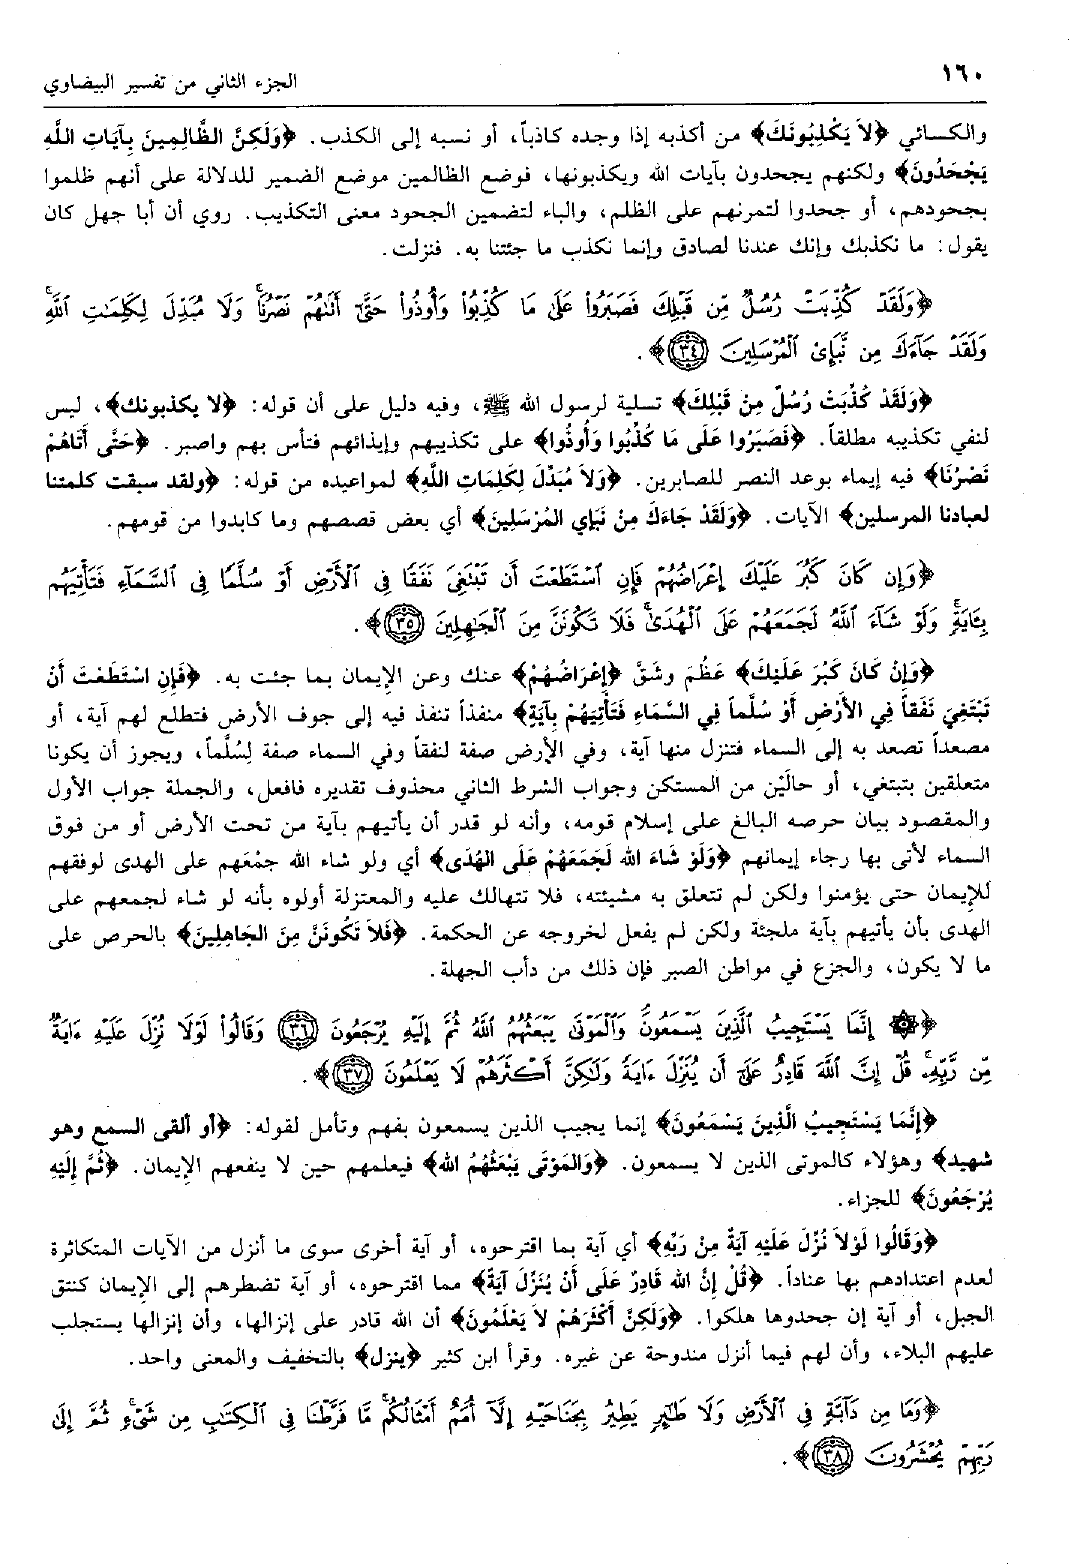 ١٦٠
الجزء الثاني من تفسير البيضاوي
والكسائي ﴿لاَ يَكْذِبُونَكَ﴾ من أكذبه إذا وجده كاذباً، أو نسبه إلى الكذب. ﴿وَلَكِنَّ الظَّالِمِينَ بِآيَاتِ اللَّهِ
يَجْحَدُونَ﴾ ولكنهم يجحدون بآيات الله ويكذبونها، فوضع الظالمين موضع الضمير للدلالة على أنهم ظلموا
بجحودهم، أو جحدوا لتمرنهم على الظلم، والباء لتضمين الجحود معنى التكذيب. روي أن أبا جهل كان
يقول: ما نكذبك وإنك عندنا لصادق وإنما نكذب ما جئتنا به. فنزلت.
﴿وَلَقَدْ كُذِّبَتْ رُسُلٌ مِّن قَبْلِكَ فَصَبَرُوا۟ عَلَىٰ مَا كُذِّبُوا۟ وَأُوذُوا۟ حَتَّىٰٓ أَتَىٰهُمْ نَصْرُنَا ۚ وَلَا مُبَدِّلَ لِكَلِمَـٰتِ ٱللَّهِ ۚ
وَلَقَدْ جَآءَكَ مِن نَّبَإِى۟ ٱلْمُرْسَلِينَ ٣٤﴾.
﴿وَلَقَدْ كُذِّبَتْ رُسُلٌ مِنْ قَبْلِكَ﴾ تسلية لرسول الله ﷺ، وفيه دليل على أن قوله: ﴿لا يكذبونك﴾، ليس
لنفي تكذيبه مطلقاً. ﴿فَصَبَرُوا عَلَى مَا كُذِّبُوا وَأُوذُوا﴾ على تكذيبهم وإيذائهم فتأس بهم واصبر. ﴿حَتَّى أَتَاهُمْ
نَصْرُنَا﴾ فيه إيماء بوعد النصر للصابرين. ﴿وَلاَ مُبَدِّلَ لِكَلِمَاتِ اللَّهِ﴾ لمواعيده من قوله: ﴿ولقد سبقت كلمتنا
لعبادنا المرسلين﴾ الآيات. ﴿وَلَقَدْ جَاءَكَ مِنْ نَبَإِي المُرْسَلِينَ﴾ أي بعض قصصهم وما كابدوا من قومهم.
﴿وَإِن كَانَ كَبُرَ عَلَيْكَ إِعْرَاضُهُمْ فَإِنِ ٱسْتَطَعْتَ أَن تَبْتَغِىَ نَفَقًا فِى ٱلْأَرْضِ أَوْ سُلَّمًا فِى ٱلسَّمَآءِ فَتَأْتِيَهُم
بِـَٔايَةٍ ۚ وَلَوْ شَآءَ ٱللَّهُ لَجَمَعَهُمْ عَلَى ٱلْهُدَىٰ ۚ فَلَا تَكُونَنَّ مِنَ ٱلْجَـٰهِلِينَ ٣٥﴾.
﴿وَإِنْ كَانَ كَبُرَ عَلَيْكَ﴾ عَظُم وشَقَّ ﴿إِعْرَاضُهُمْ﴾ عنك وعن الإيمان بما جئت به. ﴿فَإِنِ اسْتَطَعْتَ أَنْ
تَبْتَغِيَ نَفَقاً فِي الأَرْضِ أَوْ سُلَّماً فِي السَّمَاءِ فَتَأْتِيَهُمْ بِآيَةٍ﴾ منفذاً تنفذ فيه إلى جوف الأرض فتطلع لهم آية، أو
مصعداً تصعد به إلى السماء فتنزل منها آية، وفي الأرض صفة لنفقاً وفي السماء صفة لِسُلَّماً، ويجوز أن يكونا
متعلقين بتبتغي، أو حالَيْن من المستكن وجواب الشرط الثاني محذوف تقديره فافعل، والجملة جواب الأول
والمقصود بيان حرصه البالغ على إسلام قومه، وأنه لو قدر أن يأتيهم بآية من تحت الأرض أو من فوق
السماء لأتى بها رجاء إيمانهم ﴿وَلَوْ شَاءَ الله لَجَمَعَهُمْ عَلَى الهُدَى﴾ أي ولو شاء الله جمْعَهم على الهدى لوفقهم
للإيمان حتى يؤمنوا ولكن لم تتعلق به مشيئته، فلا تتهالك عليه والمعتزلة أولوه بأنه لو شاء لجمعهم على
الهدى بأن يأتيهم بآية ملجئة ولكن لم يفعل لخروجه عن الحكمة. ﴿فَلاَ تَكُونَنَّ مِنَ الجَاهِلِينَ﴾ بالحرص على
ما لا يكون، والجزع في مواطن الصبر فإن ذلك من دأب الجهلة.
﴿۞ إِنَّمَا يَسْتَجِيبُ ٱلَّذِينَ يَسْمَعُونَ ۘ وَٱلْمَوْتَىٰ يَبْعَثُهُمُ ٱللَّهُ ثُمَّ إِلَيْهِ يُرْجَعُونَ ٣٦ وَقَالُوا۟ لَوْلَا نُزِّلَ عَلَيْهِ ءَايَةٌ
مِّن رَّبِّهِۦ ۚ قُلْ إِنَّ ٱللَّهَ قَادِرٌ عَلَىٰٓ أَن يُنَزِّلَ ءَايَةً وَلَـٰكِنَّ أَكْثَرَهُمْ لَا يَعْلَمُونَ ٣٧﴾.
﴿إِنَّمَا يَسْتَجِيبُ الَّذِينَ يَسْمَعُونَ﴾ إنما يجيب الذين يسمعون بفهم وتأمل لقوله: ﴿أو ألقى السمع وهو
شهيد﴾ وهؤلاء كالموتى الذين لا يسمعون. ﴿وَالمَوْتَى يَبْعَثُهُمُ الله﴾ فيعلمهم حين لا ينفعهم الإيمان. ﴿ثُمَّ إِلَيْهِ
يُرْجَعُونَ﴾ للجزاء.
﴿وَقَالُوا لَوْلاَ نُزِّلَ عَلَيْهِ آيَةٌ مِنْ رَبِّهِ﴾ أي آية بما اقترحوه، أو آية أخرى سوى ما أنزل من الآيات المتكاثرة
لعدم اعتدادهم بها عناداً. ﴿قُلْ إِنَّ الله قَادِرٌ عَلَى أَنْ يُنَزِّلَ آيَةً﴾ مما اقترحوه، أو آية تضطرهم إلى الإيمان كنتق
الجبل، أو آية إن جحدوها هلكوا. ﴿وَلَكِنَّ أَكْثَرَهُمْ لاَ يَعْلَمُونَ﴾ أن الله قادر على إنزالها، وأن إنزالها يستجلب
عليهم البلاء، وأن لهم فيما أنزل مندوحة عن غيره. وقرأ ابن كثير ﴿ينزل﴾ بالتخفيف والمعنى واحد.
﴿وَمَا مِن دَآبَّةٍ فِى ٱلْأَرْضِ وَلَا طَـٰٓئِرٍ يَطِيرُ بِجَنَاحَيْهِ إِلَّآ أُمَمٌ أَمْثَالُكُم ۚ مَّا فَرَّطْنَا فِى ٱلْكِتَـٰبِ مِن شَىْءٍ ۚ ثُمَّ إِلَىٰ
رَبِّهِمْ يُحْشَرُونَ ٣٨﴾.